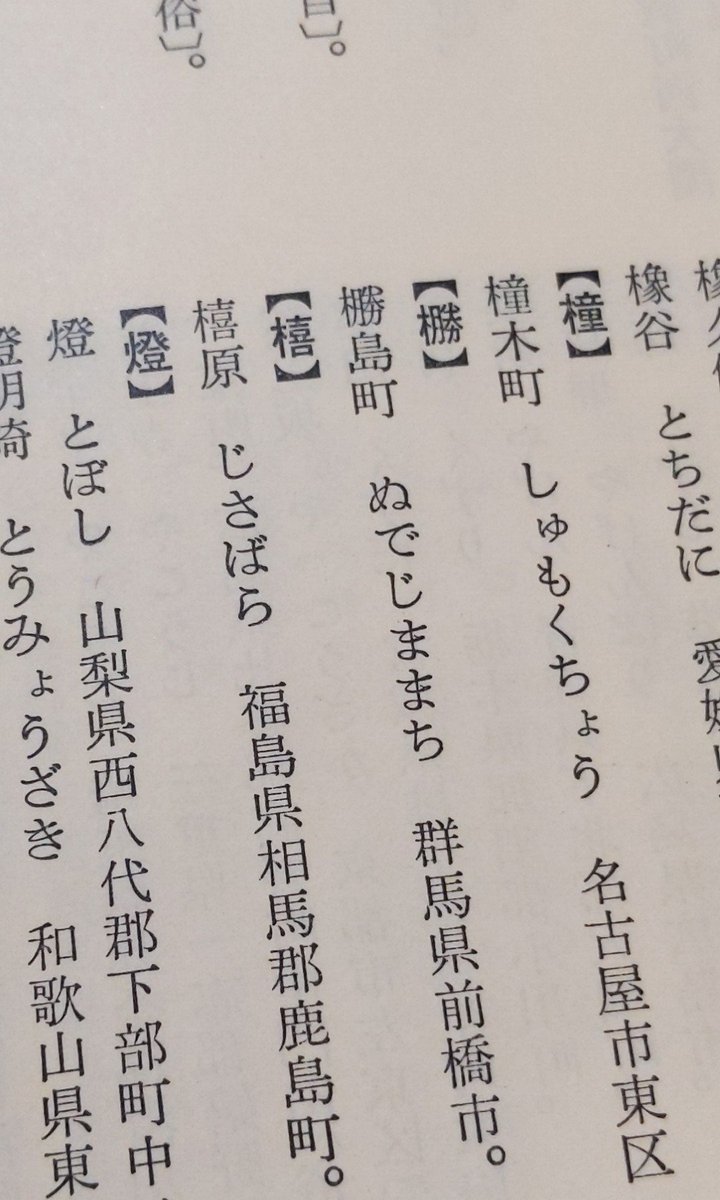 俗〕。
橡谷 とちだに 愛媛県
【橦】
橦木町 しゅもくちょう 名古屋市東区
【橳】
橳島町 ぬでじままち 群馬県前橋市。
【橲】
橲原 じさばら 福島県相馬郡鹿島町。
【燈】
燈 とぼし 山梨県西八代郡下部町中
燈明崎 とうみょうざき 和歌山県東